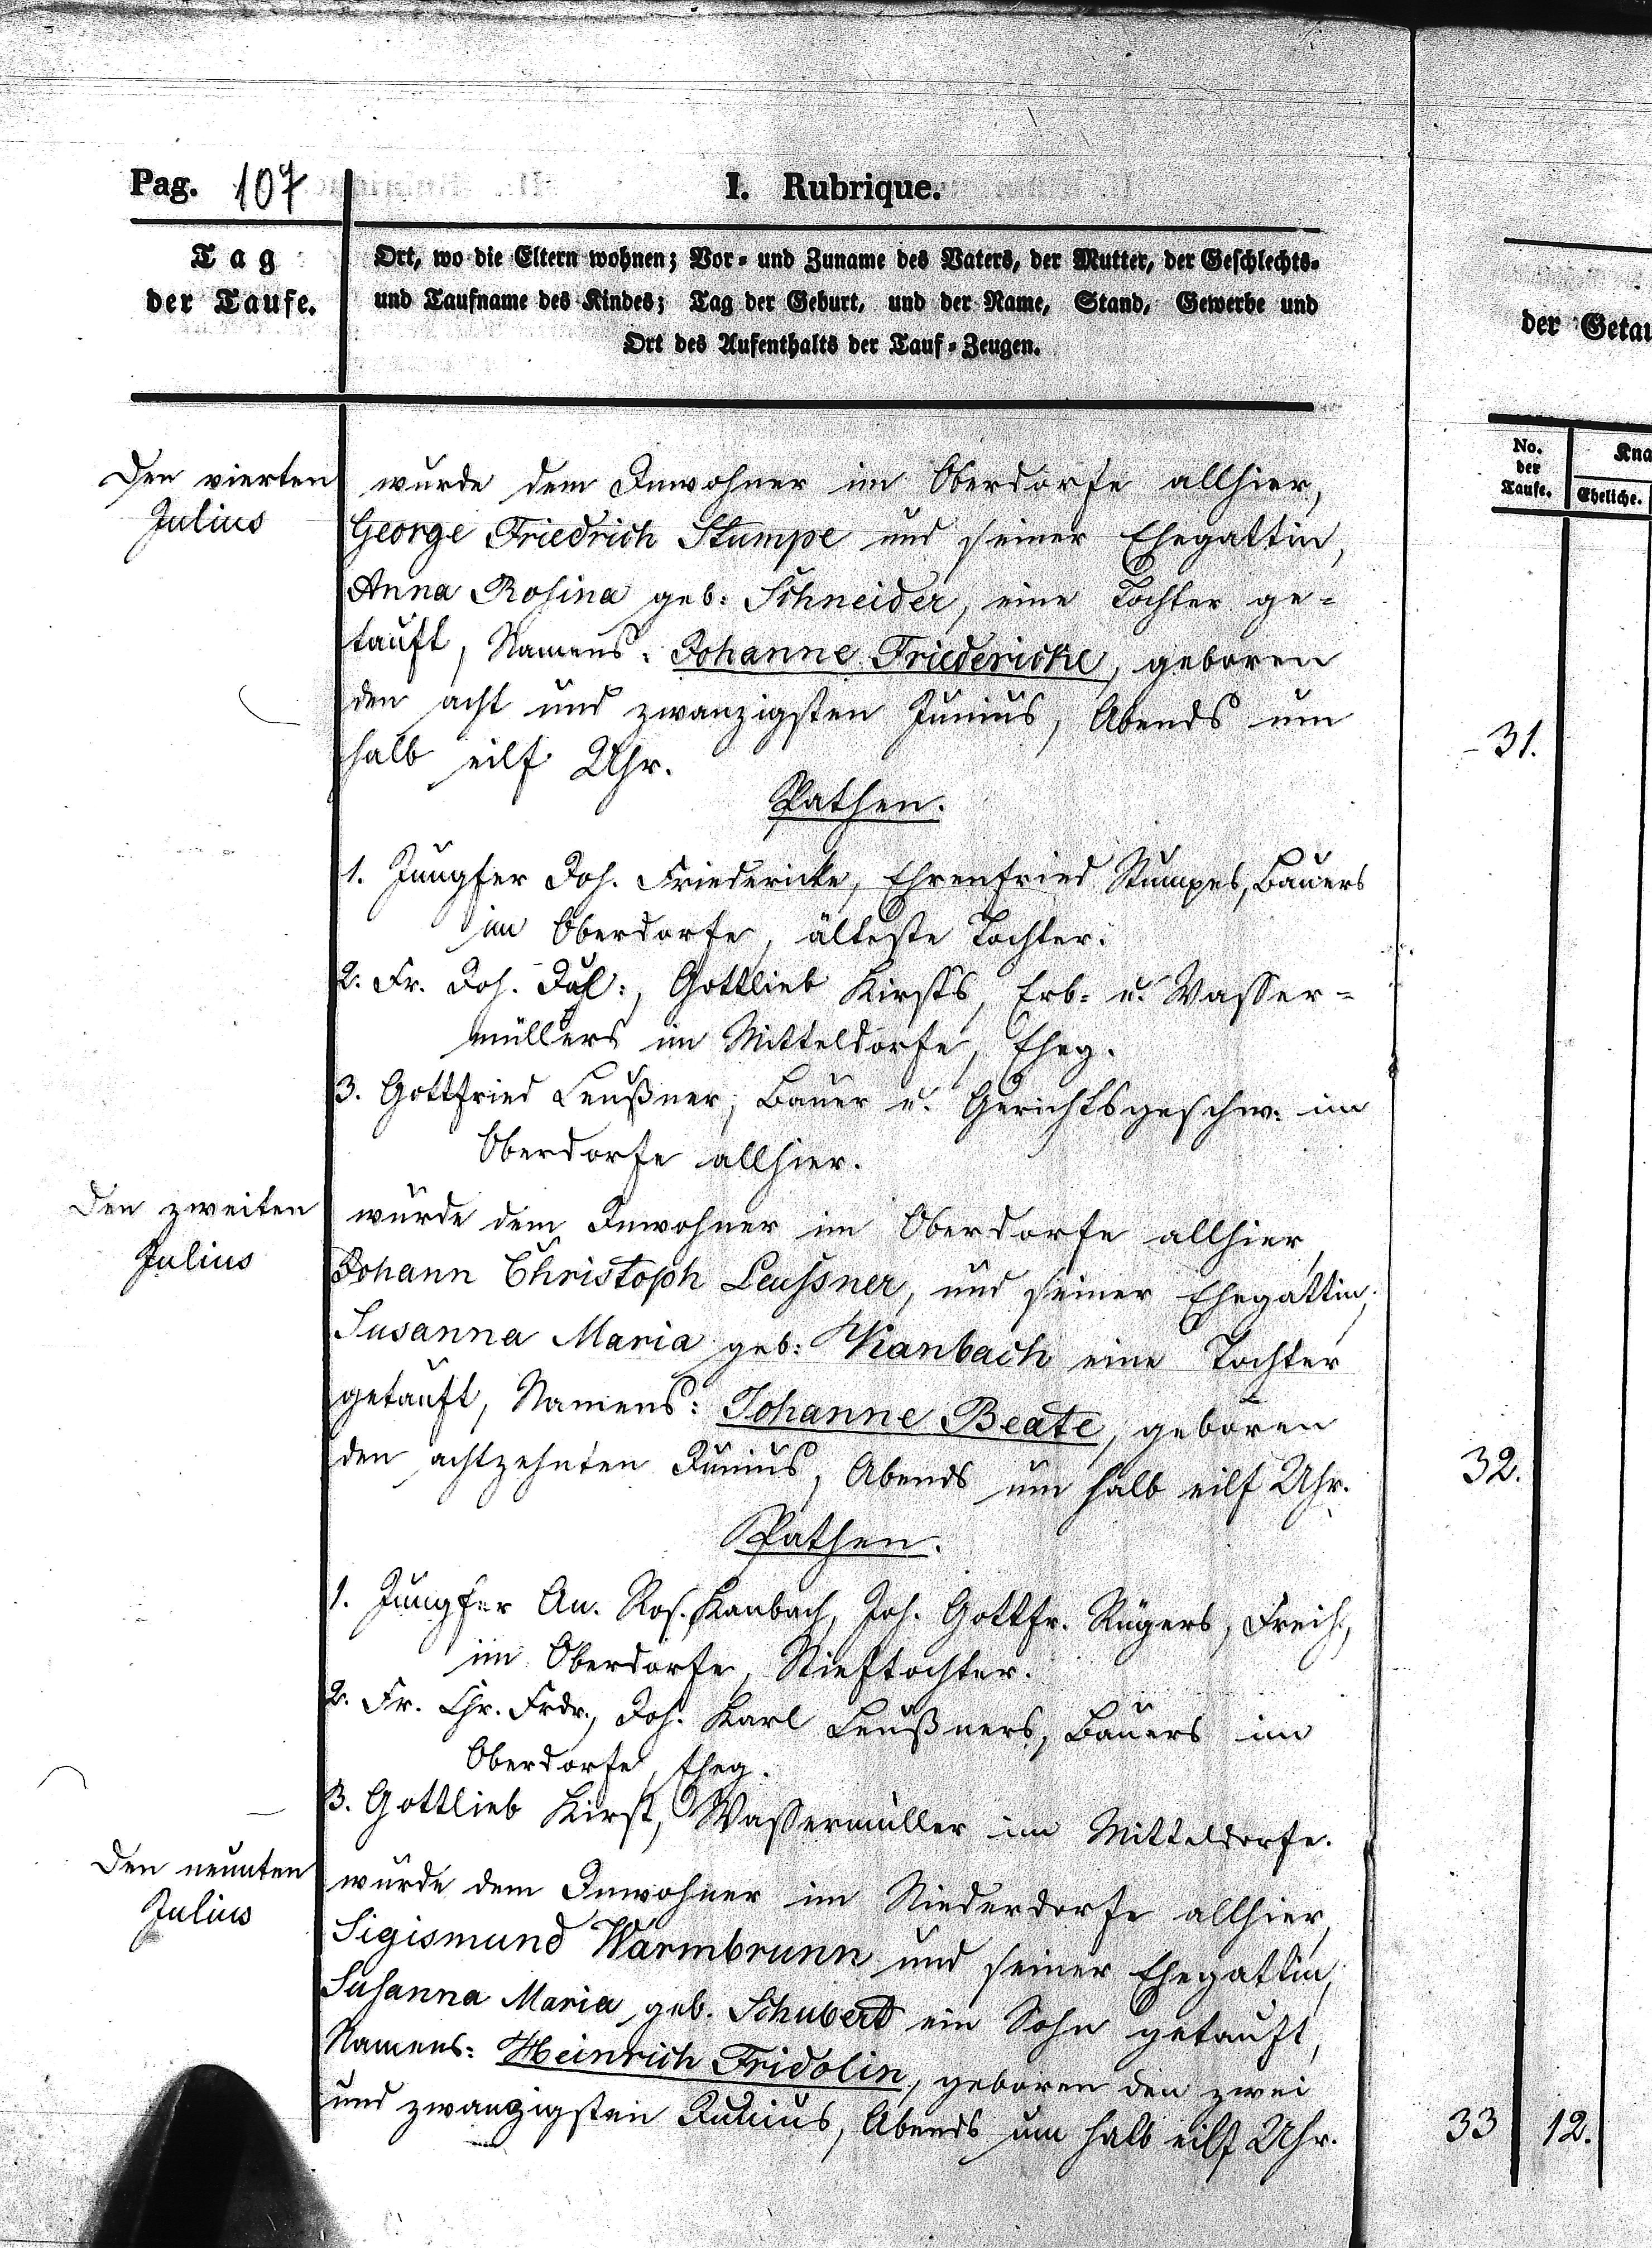 Pag. 107
I. Rubrique.
Tag
der Taufe.
Ort, wo die Eltern wohnen; Vor- und Zuname des Vaters, der Mutter, der Geschlechts-
und Taufname des Kindes; Tag der Geburt, und der Name, Stand, Gewerbe und
Ort des Aufenthalts der Tauf-Zeugen.
Den vierten
Julius
wurde dem Inwohner im Oberdorfe allhier,
George Friedrich Stumpe und seiner Ehegattin,
Anna Rosina geb: Schneider, eine Tochter ge-
tauft, Namens: Johanne Friedericke, geboren
den acht und zwanzigsten Junius, Abends um
halb eilf Uhr.
Pathen.
1. Jungfer Joh. Friedericke, Ehrenfried Stumpes, Bauers
im Oberdorfe, älteste Tochter.
2. Fr. Joh. Jul:, Gottlieb Kirsts, Erb- u. Wasser-
müllers im Mitteldorfe, Eheg.
3. Gottfried Leußner, Bauer u. Gerichtsgeschw: im
Oberdorfe allhier.
Den zweiten
Julius
wurde dem Inwohner im Oberdorfe allhier,
Johann Christoph Leussner, und seiner Ehegattin,
Susanna Maria geb: Kanbach eine Tochter
getauft, Namens: Johanne Beate, geboren
den achtzehnten Junius, Abends um halb eilf Uhr.
Pathen.
1. Jungfer An. Ros. Kanbach, Joh. Gottfr. Rügers, Freih.,
im Oberdorfe, Stieftochter.
2. Fr. Chr. Frdr., Joh. Karl Leußners, Bauers im
Oberdorfe, Eheg.
3. Gottlieb Kirst, Wassermüller im Mitteldorfe.
Den neunten
Julius
wurde dem Inwohner im Niederdorfe allhier,
Sigismund Warmbrunn und seiner Ehegattin,
Susanna Maria geb. Schubert ein Sohn getauft,
Namens: Heinrich Fridolin, geboren den zwei
und zwanzigsten Junius, Abends um halb eilf Uhr.
der Getau
No.
der
Taufe.
Kna
Eheliche.
31.
32.
33 12.